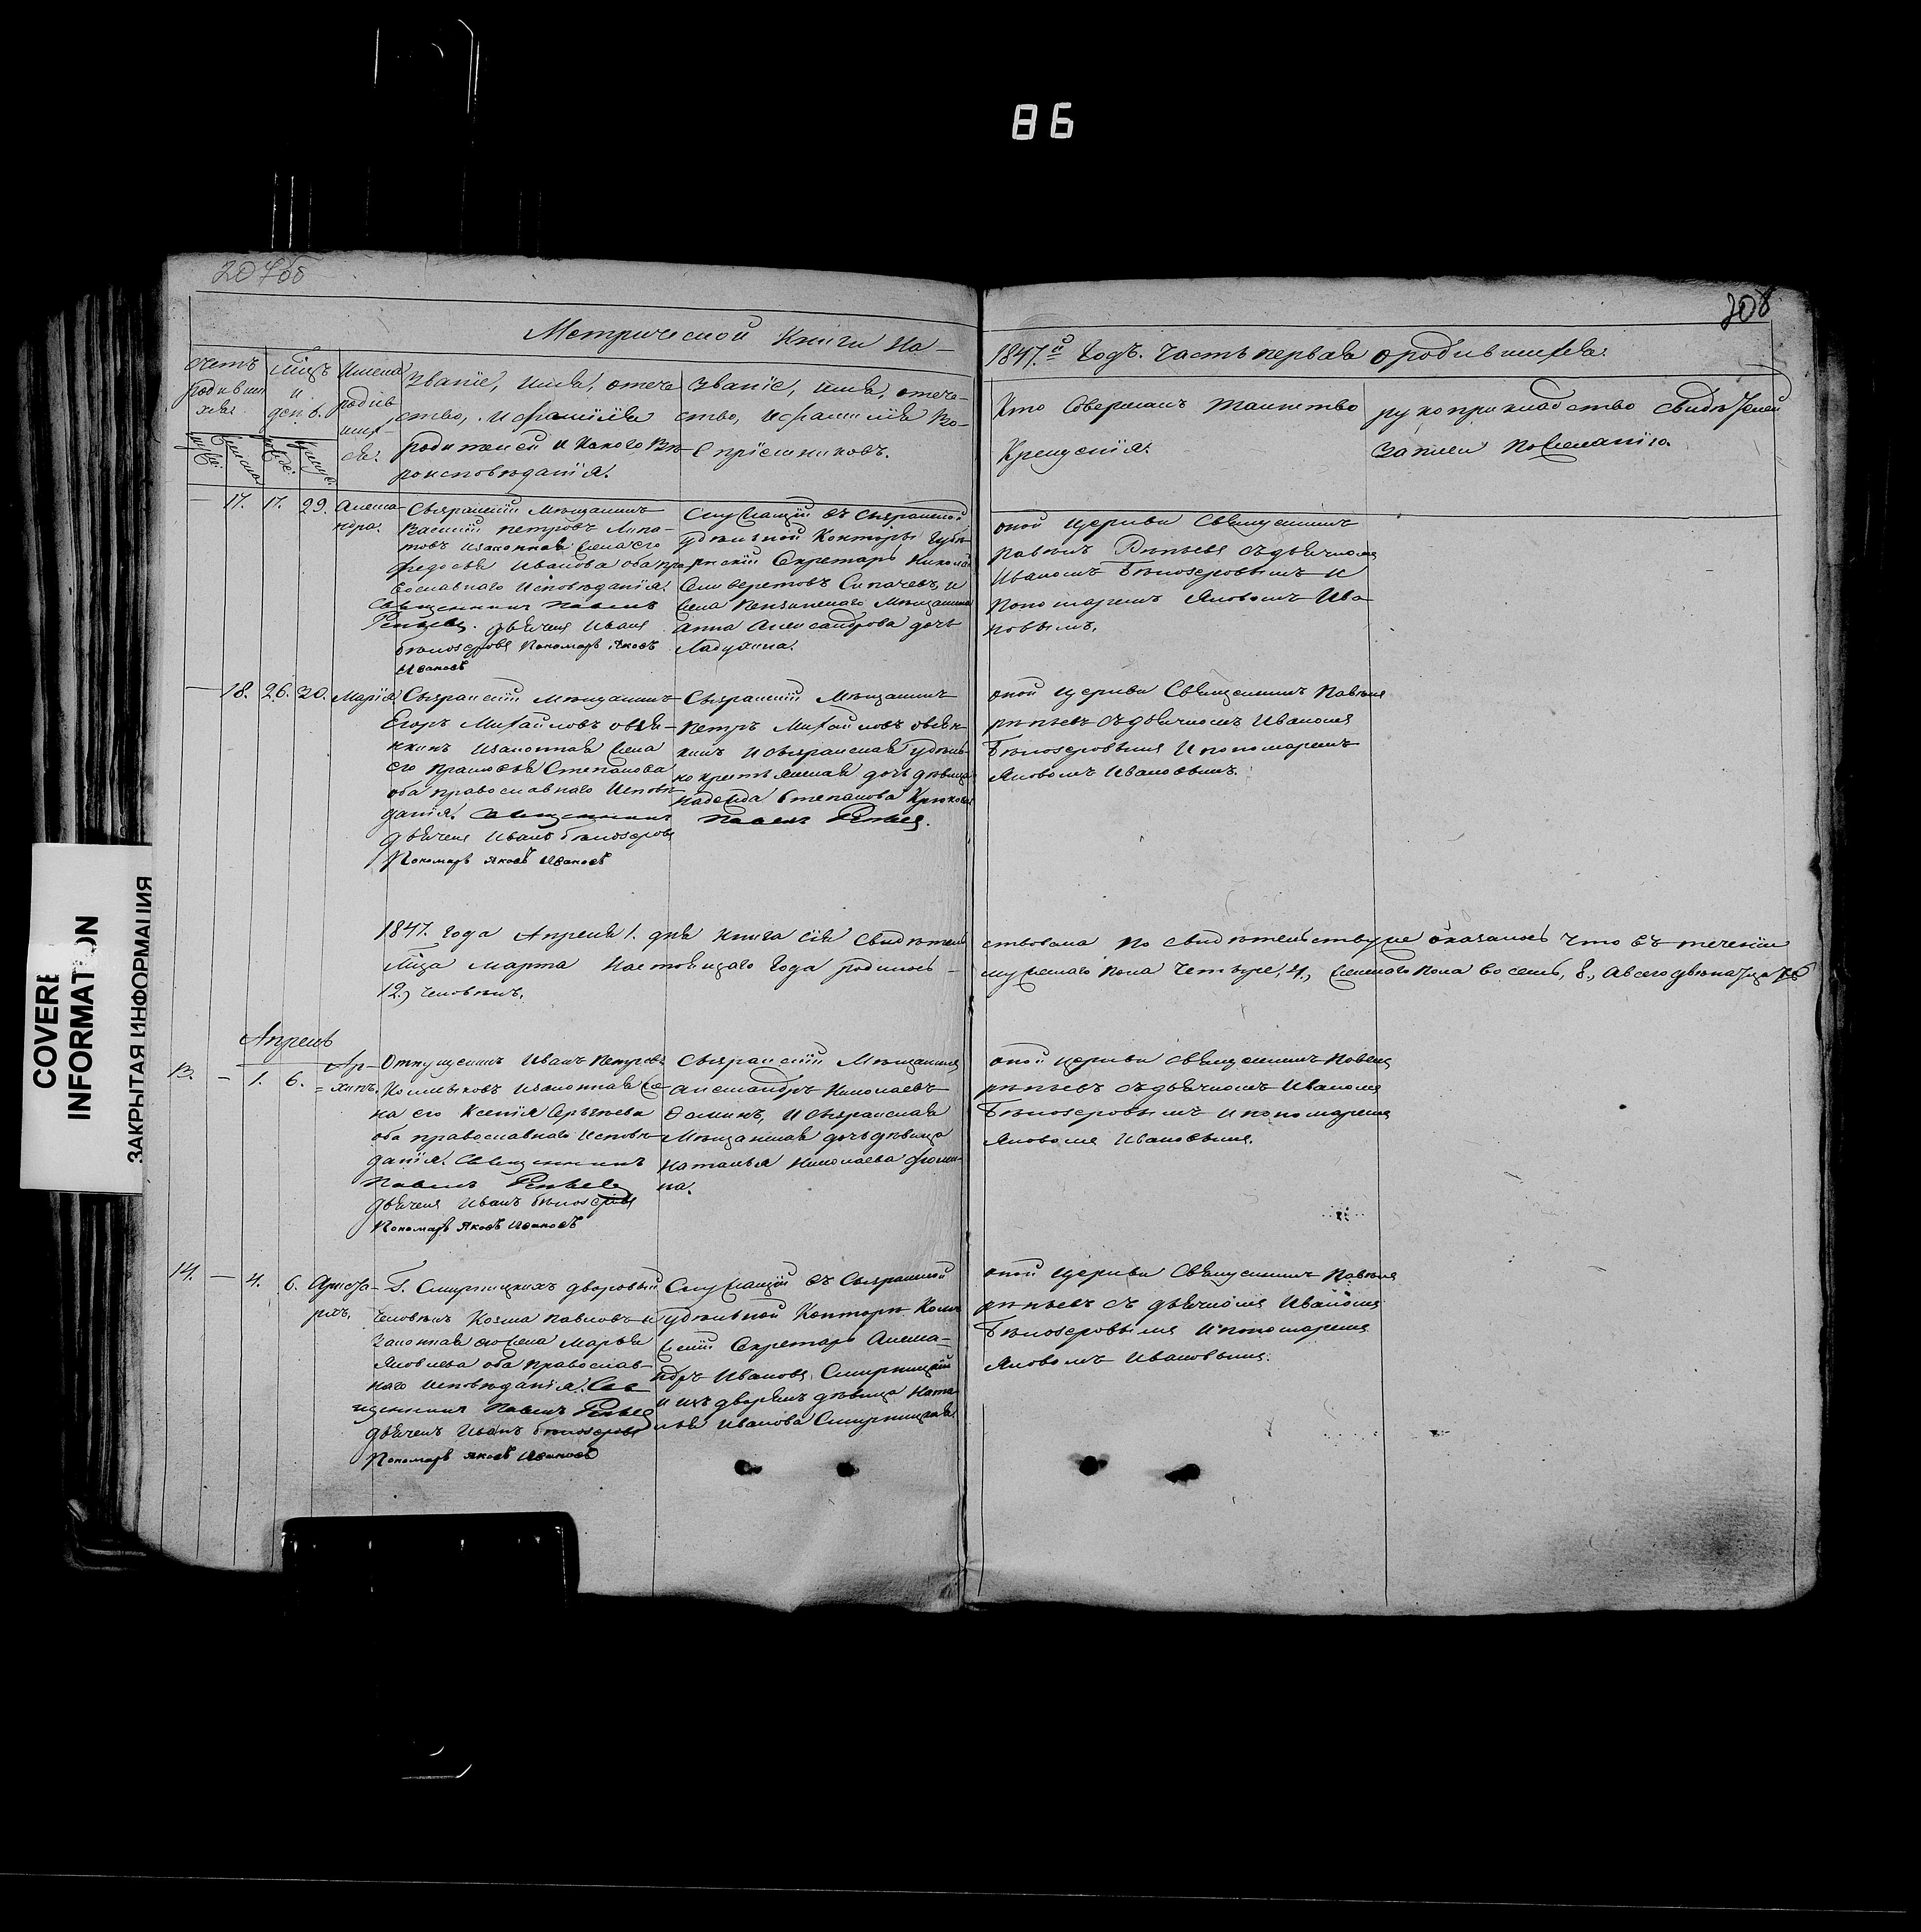 86
207об
208
Метрической Книги на
1847.й Годъ. Часть первая о родившихся.
Счетъ родившихся.
Мцъ и ден.
Имена родившихся.
Званіе, имя, отече
ство, и фамилія
родителей и какого вѣ
роисповѣданія.
Званіе, имя, отече-
ство, и фамилія во-
спріемниковъ.
Кто совершалъ таинство
Крещенія.
рукоприкладство свидѣтелей
записи по желанію.
17. 17. 29. Алекса-
ндра.
Сызранскій Мѣщанинъ
Василій Петровъ
товъ и законная жена его
Федосья Иванова оба пра
вославнаго исповѣданія.
Священникъ Павелъ
дьячекъ Иванъ
Бѣлозеровъ Пономарь Яковъ
Ивановъ
Служащій въ Сызранской
удѣльной Конторѣ Губе-
рнскій Секретарь Николай
и
жена Пензенскаго Мѣщанина
Анна Александрова дочь
оной церкви Священникъ
Павелъ съ дьячкомъ
Иваномъ Бѣлозеровымъ и
Пономаремъ Яковомъ Ива
новымъ.
18. 26. 30. Марія.
Сызранскій Мѣщанинъ
Егоръ Михайловъ Овся-
нкинъ и законная жена
его Прасковья Степанова
оба православнаго исповѣ
данія. Священникъ Павелъ
дьячекъ Иванъ Бѣлозеровъ
Пономарь Яковъ Ивановъ
Сызранскій Мѣщанинъ
Петръ Михайловъ Овсян
кинъ и Сызранская удѣль
но крестьянская дочь дѣвица
Надежда Степанова Крюкова
оной церкви Священникъ Павелъ
съ дьячкомъ Иваномъ
Бѣлозеровымъ и пономаремъ
Яковомъ Ивановымъ.
1847. года Апреля 1. дня книга сія свидѣтель
ствована по свидѣтельству же оказалось что въ теченіи
Мца марта настоящаго года родилось
мужескаго пола четыре, 4., женскаго пола восемь, 8., а всего двенатцать
12.) человѣкъ.
Апрель
13. - 1. 6. Ар-
хипъ.
Отпущенникъ Иванъ Петровъ
и законная же
на его Ксенія Сергѣева
оба православнаго исповѣ
данія. Священникъ
Павелъ
дьячекъ Иванъ Бѣлозеровъ
Пономарь Яковъ Ивановъ
Сызранскій Мѣщанинъ
Александръ Николаевъ
Ѳоминъ, и Сызранская
Мѣщанская дочь дѣвица
Наталья Николаева Фоми-
на.
оной церкви Священникъ Павелъ
съ дьячкомъ Иваномъ
Бѣлозеровымъ и пономаремъ
Яковомъ Ивановымъ.
14. - 4. 6.
Г. Смирницкихъ дворовый
человѣкъ Козма Павловъ и
законная его жена Марья
Яковлева оба православ-
наго исповѣданія. Свя
щенникъ Павелъ
дьячекъ Иванъ Бѣлозеровъ
Пономарь Яковъ Ивановъ
Служащій въ Сызранской
удѣльной Конторѣ Колле
жскій Секретарь Алекса-
ндръ Ивановъ Смирницкій
и изъ дворянъ дѣвица Ната
лья Иванова Смирницкая
оной церкви Священникъ Павелъ
съ дьячкомъ Иваномъ
Бѣлозеровымъ и пономаремъ
Яковомъ Ивановымъ.
COVERE
INFORMATION
ЗАКРЫТАЯ ИНФОРМАЦИЯ